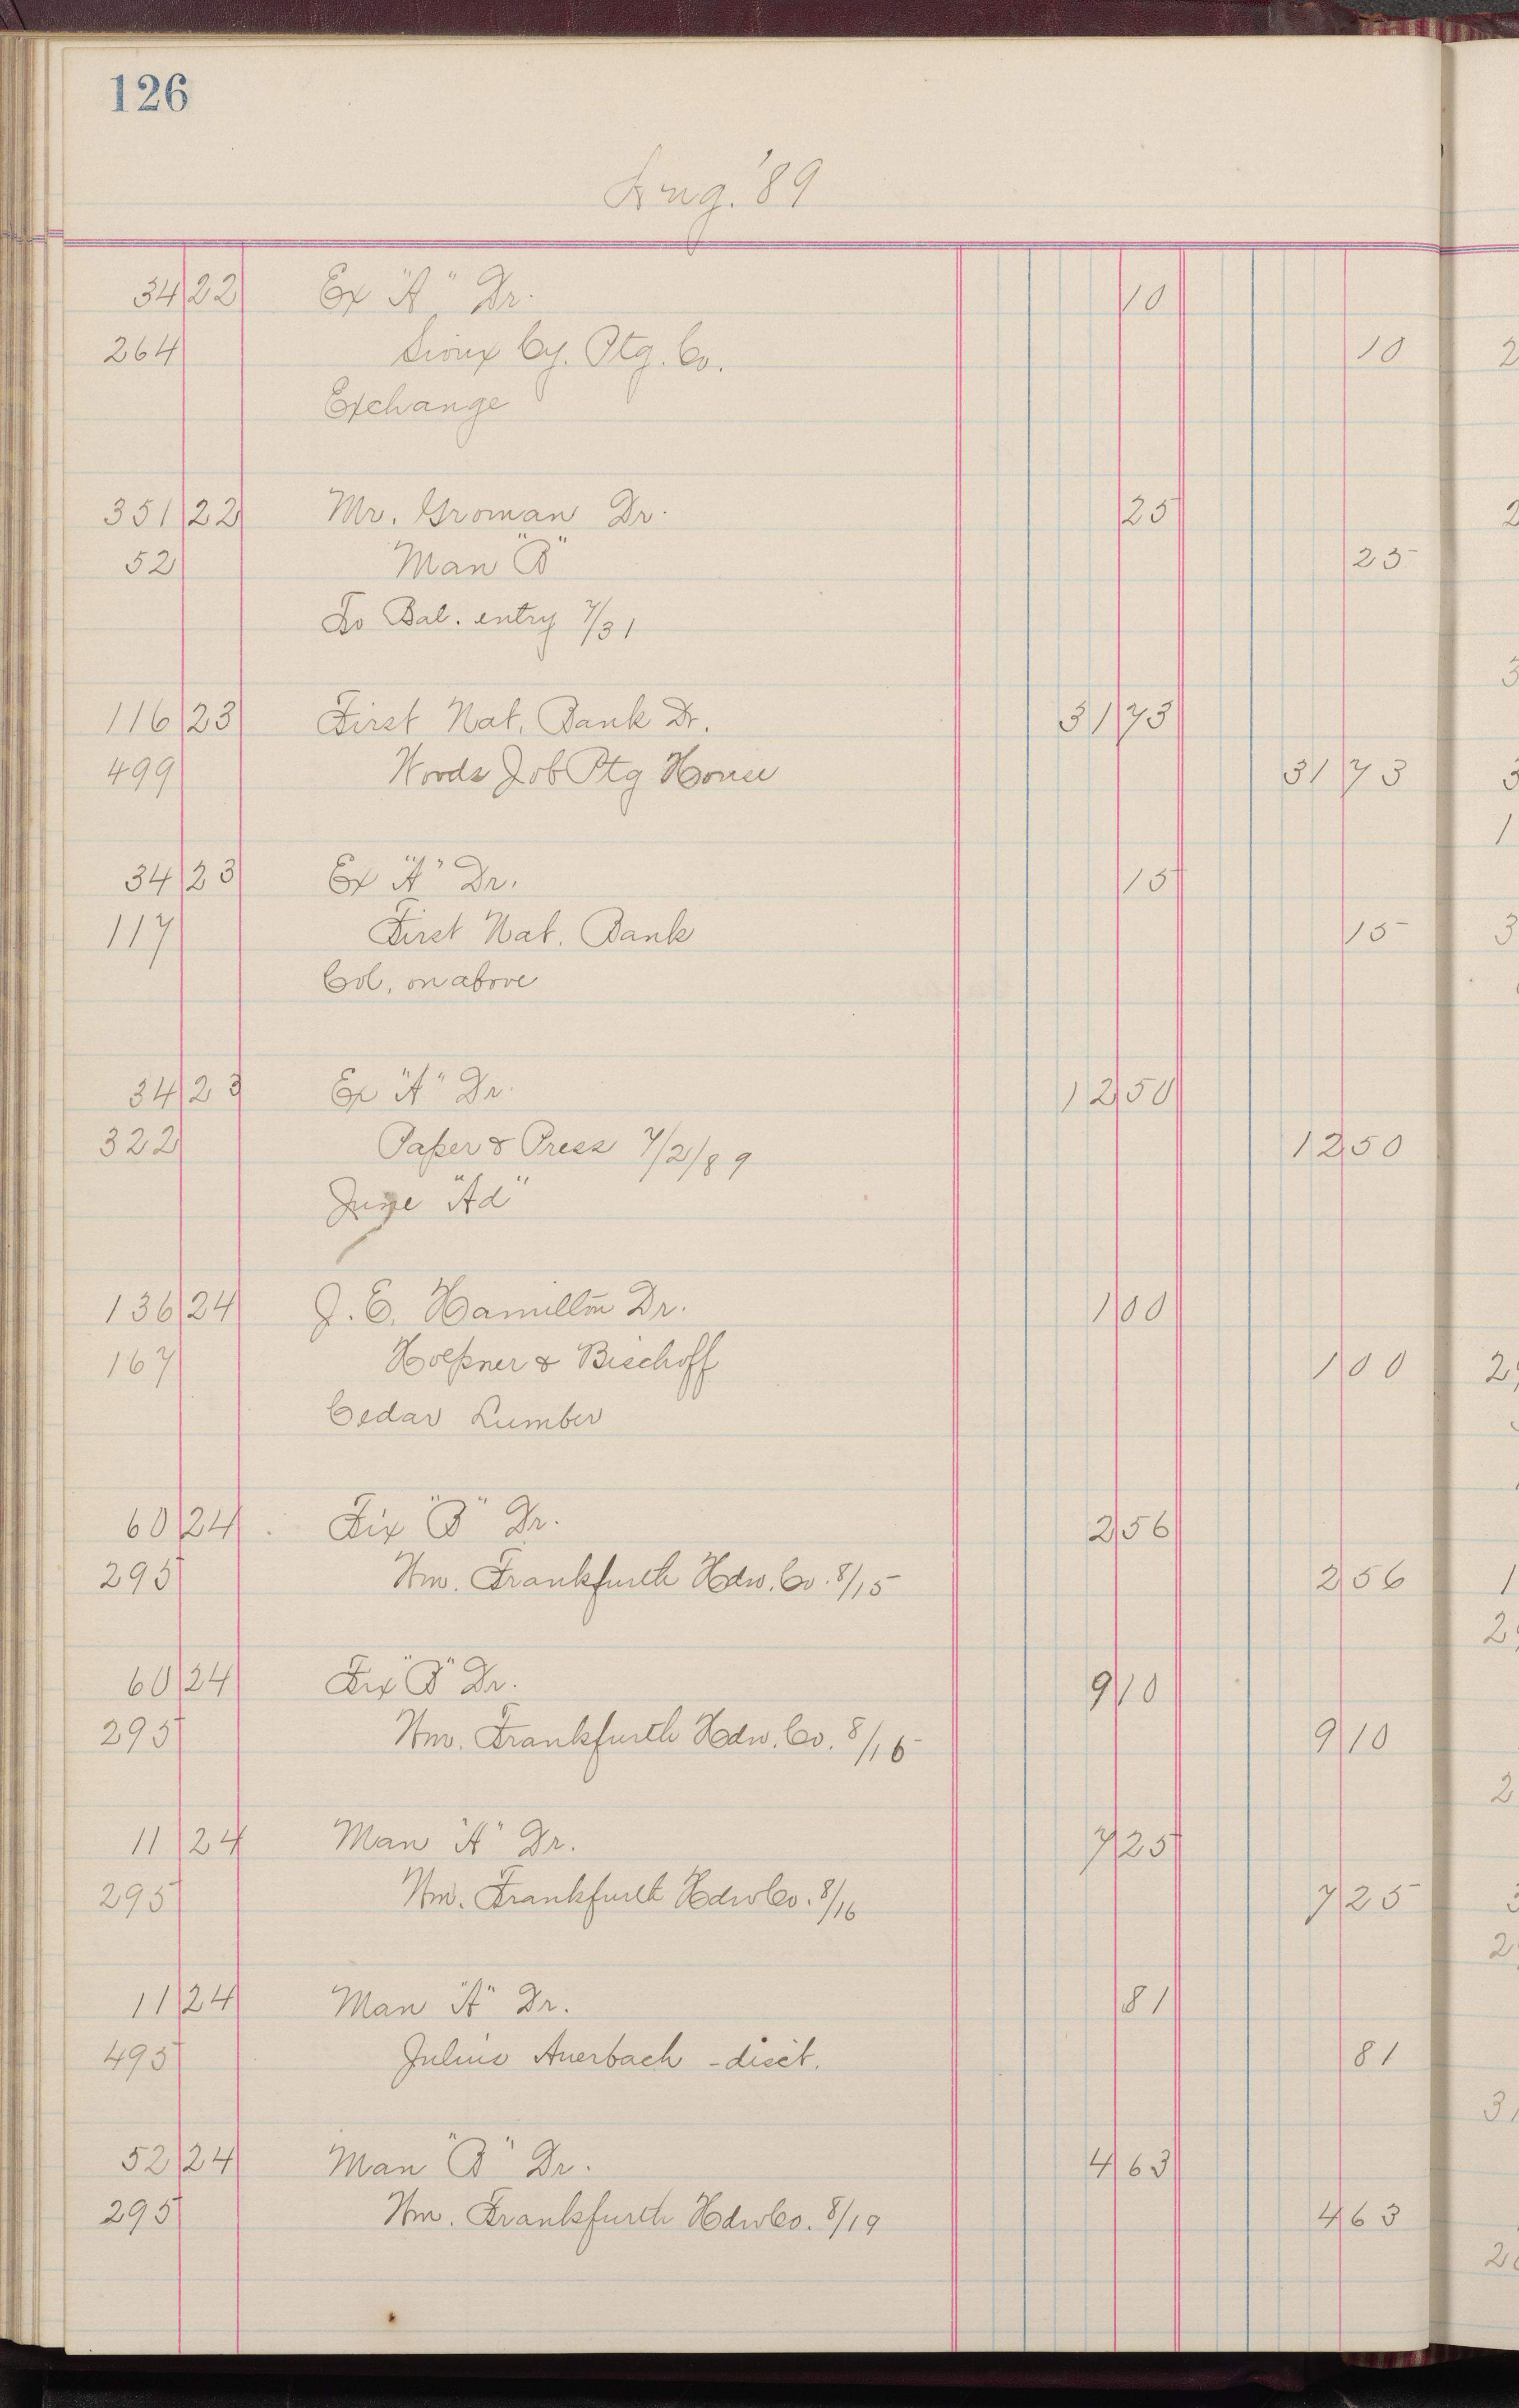 126
Aug. '89
34 22 Ex "A" Dr. 10
264 Sioux Cy. Ptg. Co. 10
Exchange
351 22 Mr. Groman Dr. 25
52 Man "B" 25
To Bal. entry 7/31
116 23 First Nat. Bank Dr. 31 73
499 Woods Job Ptg House 31 73
34 23 Ex "A" Dr. 15
117 First Nat. Bank 15
Col. on above
34 23 Ex "A" Dr. 12 50
322 Paper & Press 7/2/89 12 50
June "Ad"
136 24 J. E. Hamilton Dr. 1 00
167 Hoepner & Bischoff 1 00
Cedar Lumber
60 24 Fix "B" Dr. 2 56
295 Wm. Frankfurth Hdw. Co. 8/15 2 56
60 24 Fix "B" Dr. 9 10
295 Wm. Frankfurth Hdw. Co. 8/16 9 10
11 24 Man "A" Dr. 7 25
295 Wm. Frankfurth Hdw Co. 8/16 7 25
11 24 Man "A" Dr. 81
495 Julius Auerbach - disc't. 81
52 24 Man "B" Dr. 4 63
295 Wm. Frankfurth Hdw Co. 8/19 4 63